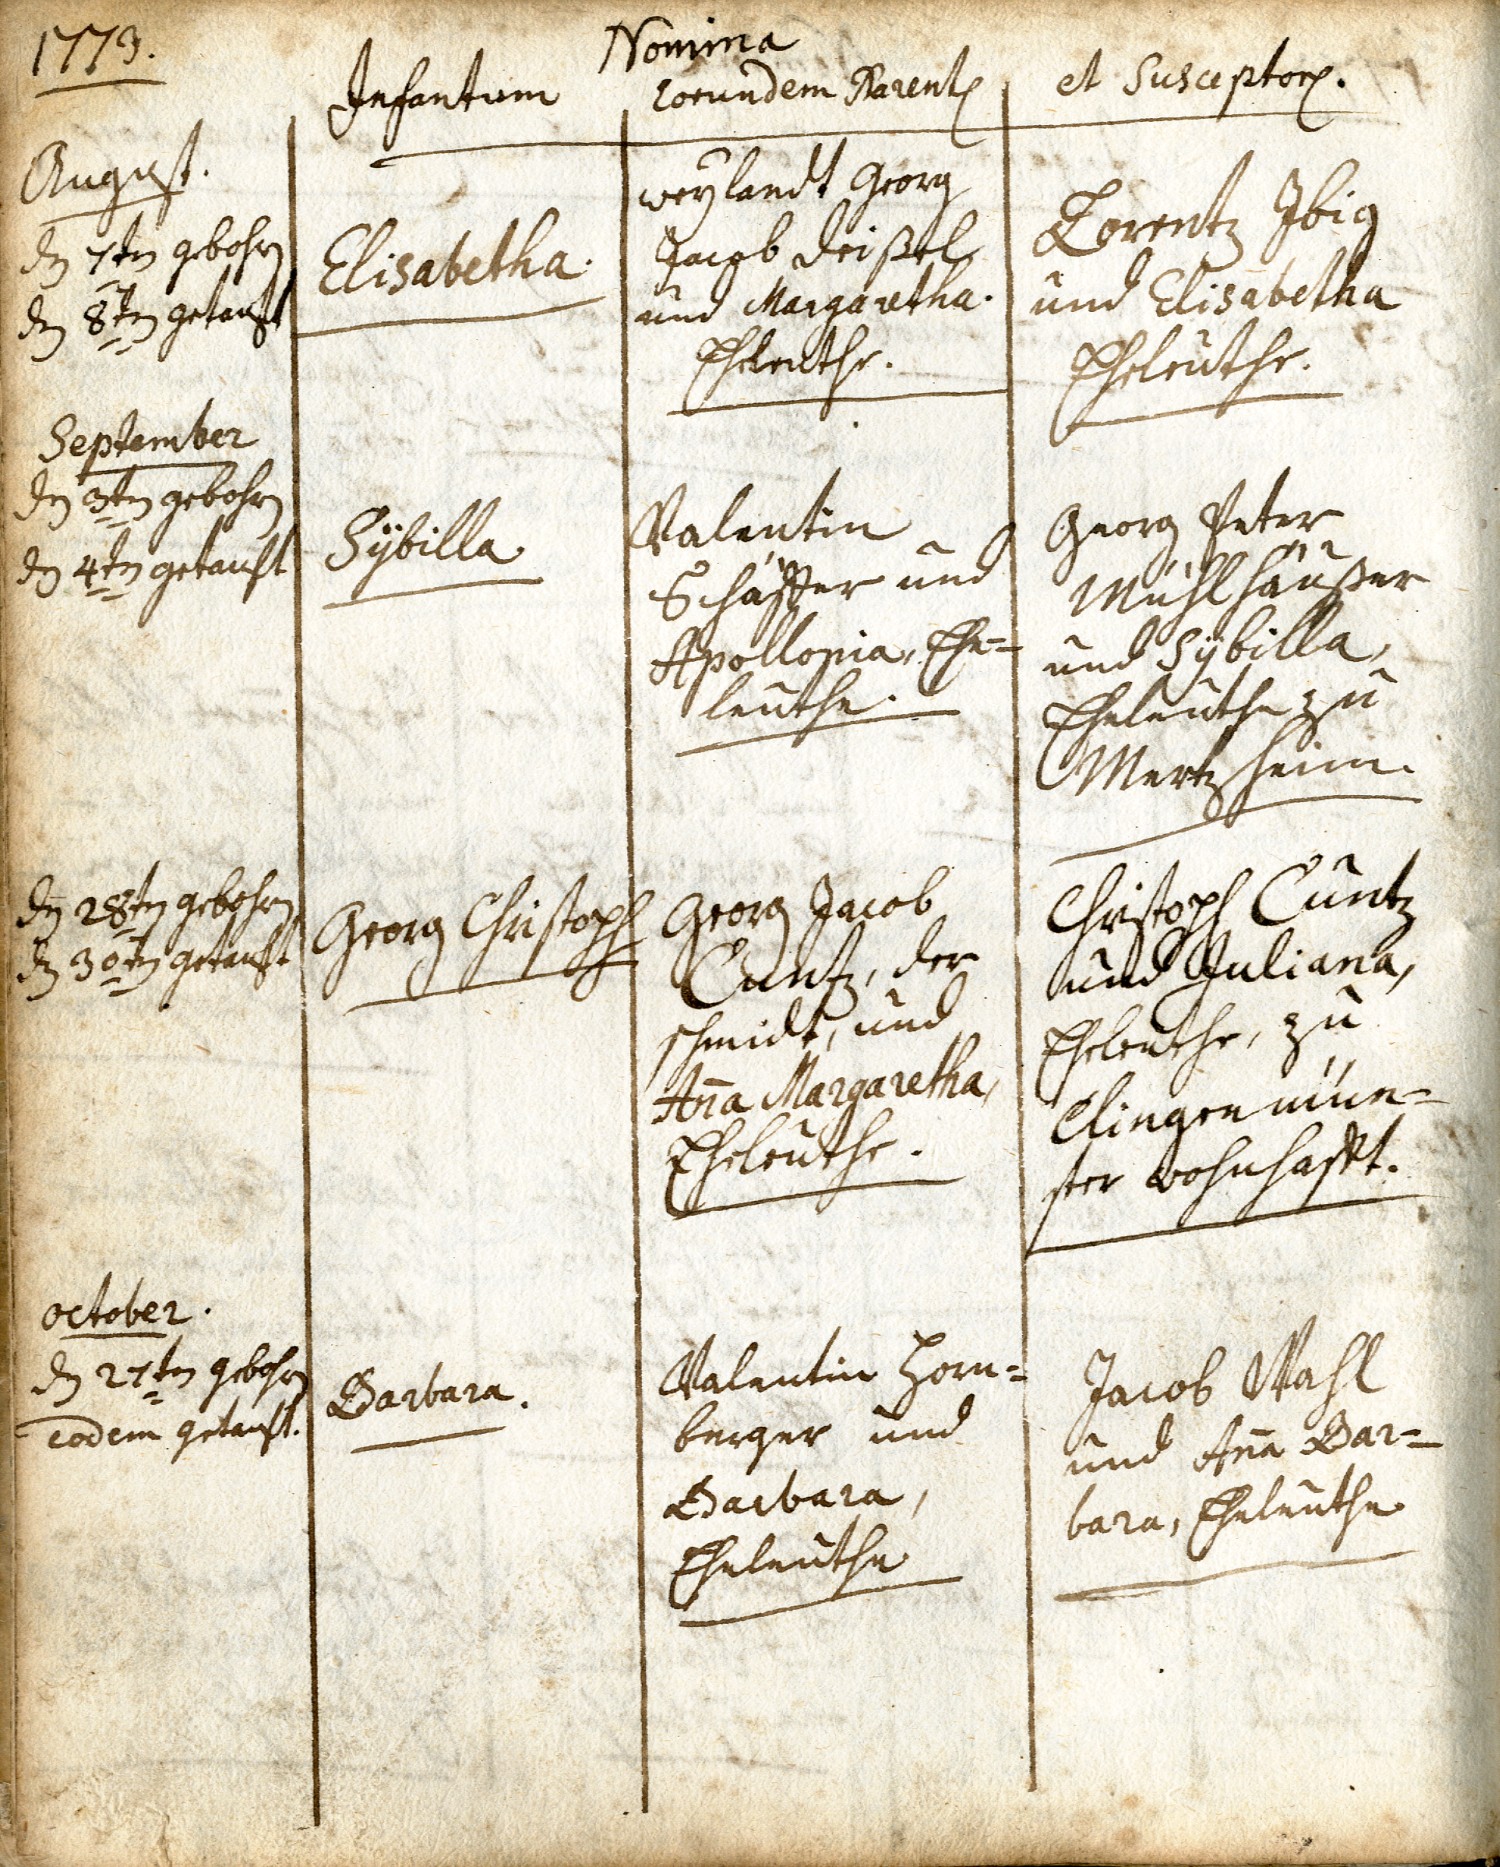 1773.
Nomina
Infantum
eorundem Parent.
et Susceptor.
August.
dn 7tn gebohrn
dn 8tn getaufft
Elisabetha.
weylandt Georg
Jacob Deißel
und Margaretha.
Eheleuthe.
Lorentz Ibig
und Elisabetha
Eheleuthe.
September
dn 3tn gebohrn
dn 4tn getaufft
Sÿbilla
Valentin
Schäffer und
Apollonia, Ehe=
leuthe.
Georg Peter
Mühlhäußer
und Sÿbilla,
Eheleuthe zu
Mertzheim.
dn 28tn gebohrn
dn 30tn getaufft
Georg Christoph
Georg Jacob
Cuntz, der
schmidt, und
An̄a Margaretha,
Eheleuthe.
Christoph Cuntz
und Juliana,
Eheleuthe, zu
Clingenmün=
ster wohnhafft.
October.
dn 27tn gebohrn
eodem getaufft.
Barbara.
Valentin Horn=
berger und
Barbara,
Eheleuthe
Jacob Wahl
und An̄a Bar=
bara, Eheleuthe